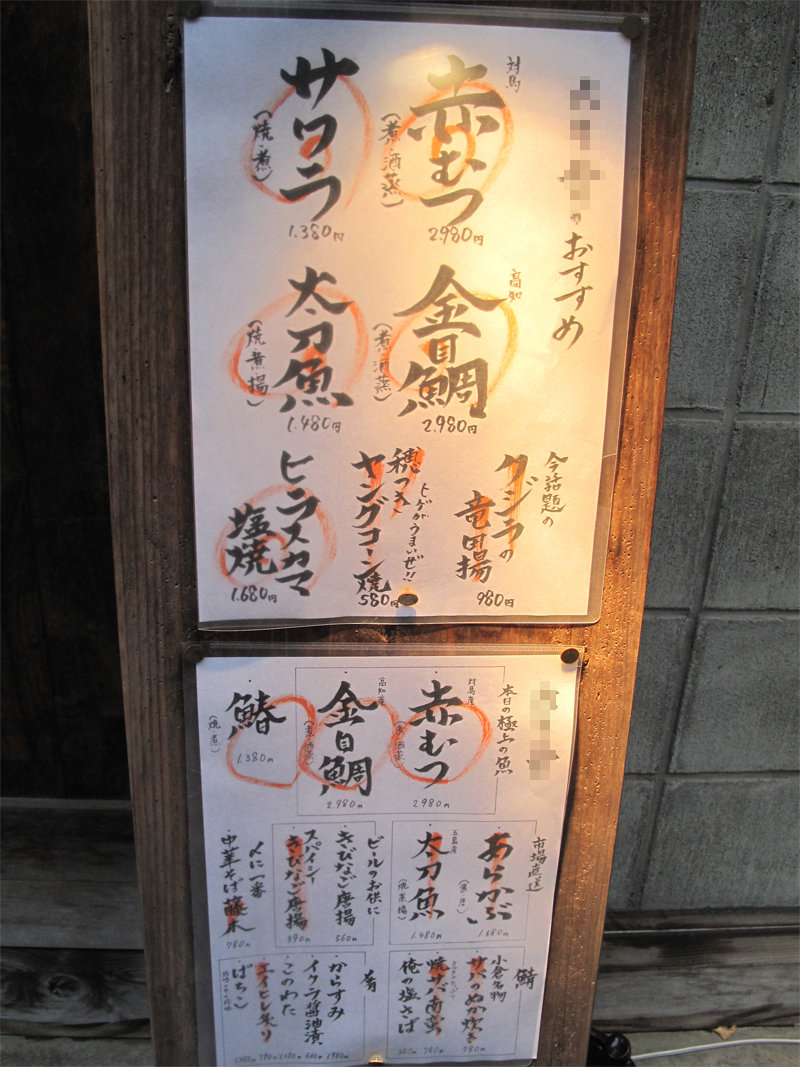 おすすめ
対馬
赤むつ
(煮・酒蒸)
2.980円
サワラ
(焼・煮)
1.380円
高知
金目鯛
(煮・酒蒸)
2.980円
太刀魚
(焼・煮・揚)
1.480円
今話題の
クジラの
竜田揚
980円
ヒゲがうまいぜ!!
穂つき
ヤングコーン焼
580円
ヒラメカマ
塩焼
1.680円
本日の極上の魚
対馬産
赤むつ
2.980円
高知産
金目鯛
(煮・酒蒸)
2.980円
鰆
(焼・煮)
1.380円
市場直送
あらかぶ
1.680円
五島産
太刀魚
(焼・煮・揚)
1.480円
ビールのお供に
きびなご唐揚
560円
スパイシー
きびなご唐揚
590円
〆に一番
中華そば藤木
780円
鯖
小倉名物
サバのぬか炊き
780円
焼サバ南蛮
780円
俺の塩さば
580円
肴
からすみ
1.980円
イクラ醤油漬
600円
このわた
エイヒレ炙り
ばちこ